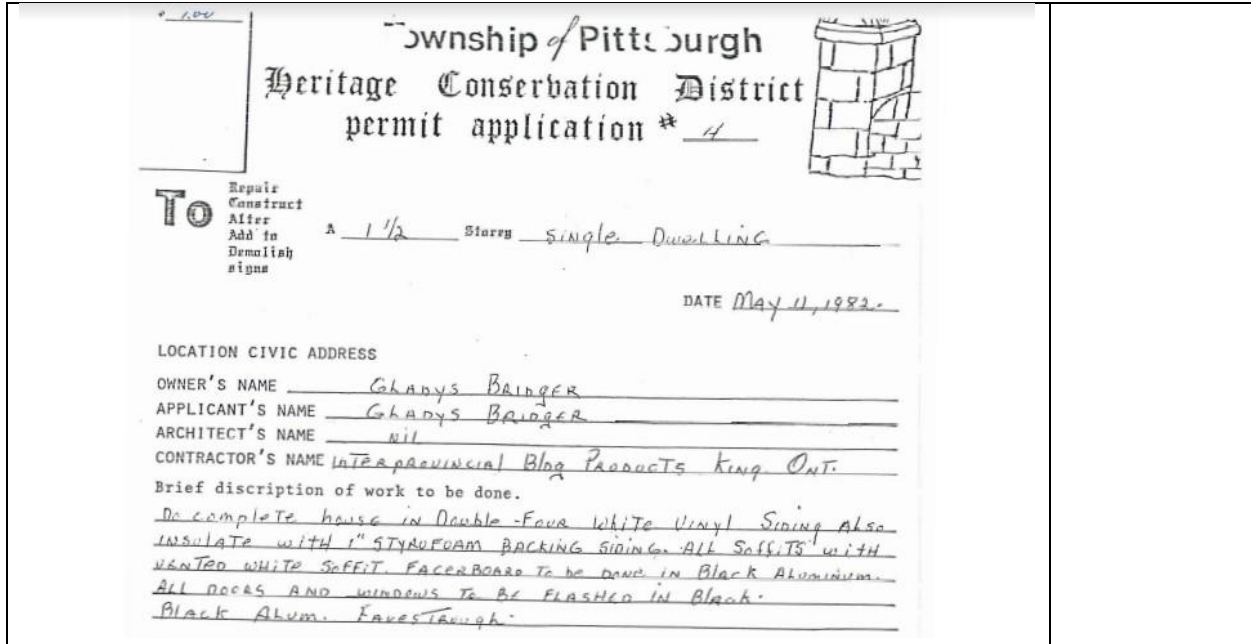 1.00
Township of Pittsburgh
Heritage Conservation District
permit application # 4
To
Repair
Construct
Alter
Add to
Demolish
signs
A 1 1/2 Storey Single Dwelling
DATE May 11, 1982.
LOCATION CIVIC ADDRESS
OWNER'S NAME GLADYS BRIDGER
APPLICANT'S NAME GLADYS BRIDGER
ARCHITECT'S NAME nil
CONTRACTOR'S NAME INTERPROVINCIAL Bldg PRODUCTS KING ONT.
Brief discription of work to be done.
Do complete house in Double-Four White Vinyl Siding Also
INSULATE with 1" STYROFOAM BACKING SIDING. ALL Soffits with
VENTED WHITE SOFFIT. FACERBOARD To be DONE IN Black ALUMINUM.
ALL DOORS AND WINDOWS To BE FLASHED IN Black.
Black ALUM. EAVESTROUGH.